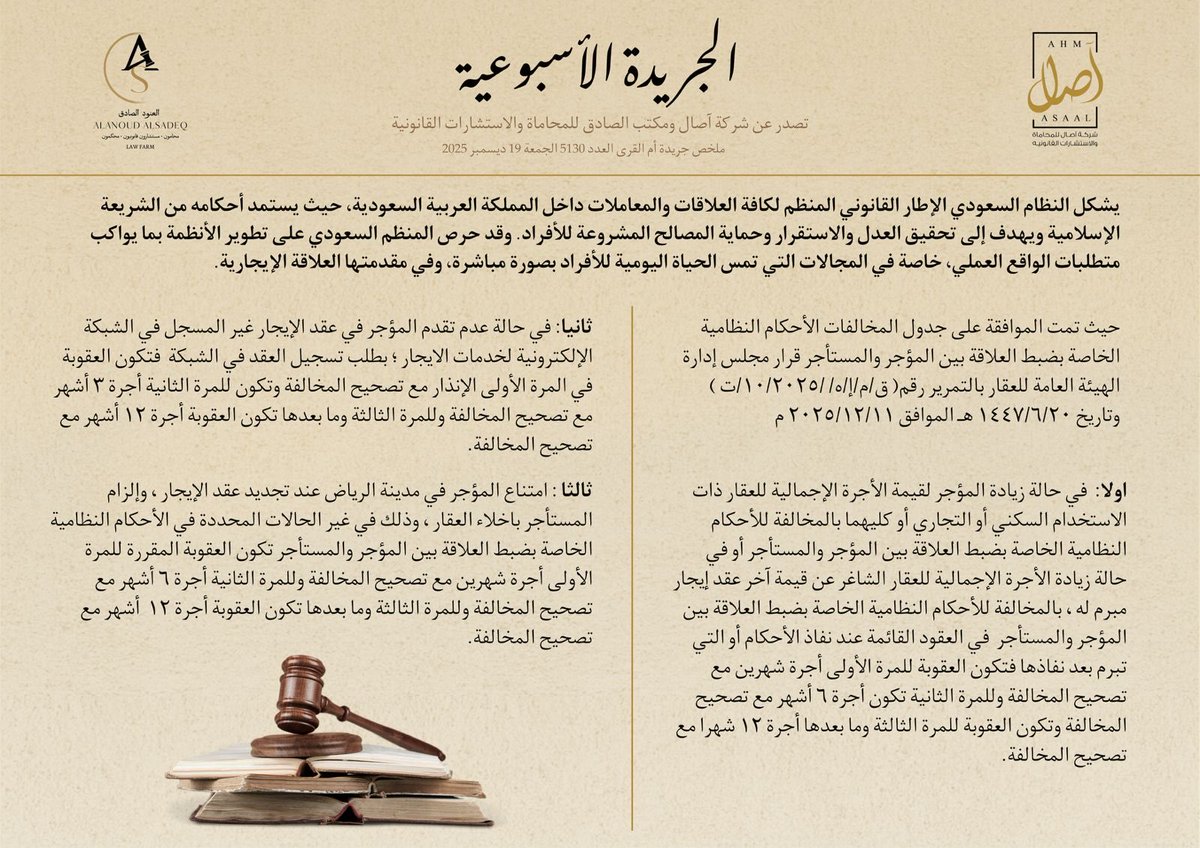 الجريدة الأسبوعية
تصدر عن شركة آصال ومكتب الصادق للمحاماة والاستشارات القانونية
ملخص جريدة أم القرى العدد 5130 الجمعة 19 ديسمبر 2025
AHM
آصال
ASAAL
شركة آصال للمحاماة
والاستشارات القانونيه
AS
العنود الصادق
ALANOUD ALSADEQ
محامون - مستشارون قانونيون - محكمون
LAW FARM
يشكل النظام السعودي الإطار القانوني المنظم لكافة العلاقات والمعاملات داخل المملكة العربية السعودية، حيث يستمد أحكامه من الشريعة
الإسلامية ويهدف إلى تحقيق العدل والاستقرار وحماية المصالح المشروعة للأفراد. وقد حرص المنظم السعودي على تطوير الأنظمة بما يواكب
متطلبات الواقع العملي، خاصة في المجالات التي تمس الحياة اليومية للأفراد بصورة مباشرة، وفي مقدمتها العلاقة الإيجارية.
حيث تمت الموافقة على جدول المخالفات الأحكام النظامية
الخاصة بضبط العلاقة بين المؤجر والمستأجر قرار مجلس إدارة
الهيئة العامة للعقار بالتمرير رقم( ق/م/إ/ه/ /١٠/٢٠٢٥/ت )
وتاريخ ١٤٤٧/٦/٢٠ هـ الموافق ٢٠٢٥/١٢/١١ م
اولا: في حالة زيادة المؤجر لقيمة الأجرة الإجمالية للعقار ذات
الاستخدام السكني أو التجاري أو كليهما بالمخالفة للأحكام
النظامية الخاصة بضبط العلاقة بين المؤجر والمستأجر أو في
حالة زيادة الأجرة الإجمالية للعقار الشاغر عن قيمة آخر عقد إيجار
مبرم له ، بالمخالفة للأحكام النظامية الخاصة بضبط العلاقة بين
المؤجر والمستأجر في العقود القائمة عند نفاذ الأحكام أو التي
تبرم بعد نفاذها فتكون العقوبة للمرة الأولى أجرة شهرين مع
تصحيح المخالفة وللمرة الثانية تكون أجرة ٦ أشهر مع تصحيح
المخالفة وتكون العقوبة للمرة الثالثة وما بعدها أجرة ١٢ شهرا مع
تصحيح المخالفة.
ثانيا: في حالة عدم تقدم المؤجر في عقد الإيجار غير المسجل في الشبكة
الإلكترونية لخدمات الايجار ؛ بطلب تسجيل العقد في الشبكة فتكون العقوبة
في المرة الأولى الإنذار مع تصحيح المخالفة وتكون للمرة الثانية أجرة ٣ أشهر
مع تصحيح المخالفة وللمرة الثالثة وما بعدها تكون العقوبة أجرة ١٢ أشهر مع
تصحيح المخالفة.
ثالثا : امتناع المؤجر في مدينة الرياض عند تجديد عقد الإيجار ، وإلزام
المستأجر باخلاء العقار ، وذلك في غير الحالات المحددة في الأحكام النظامية
الخاصة بضبط العلاقة بين المؤجر والمستأجر تكون العقوبة المقررة للمرة
الأولى أجرة شهرين مع تصحيح المخالفة وللمرة الثانية أجرة ٦ أشهر مع
تصحيح المخالفة وللمرة الثالثة وما بعدها تكون العقوبة أجرة ١٢ أشهر مع
تصحيح المخالفة.